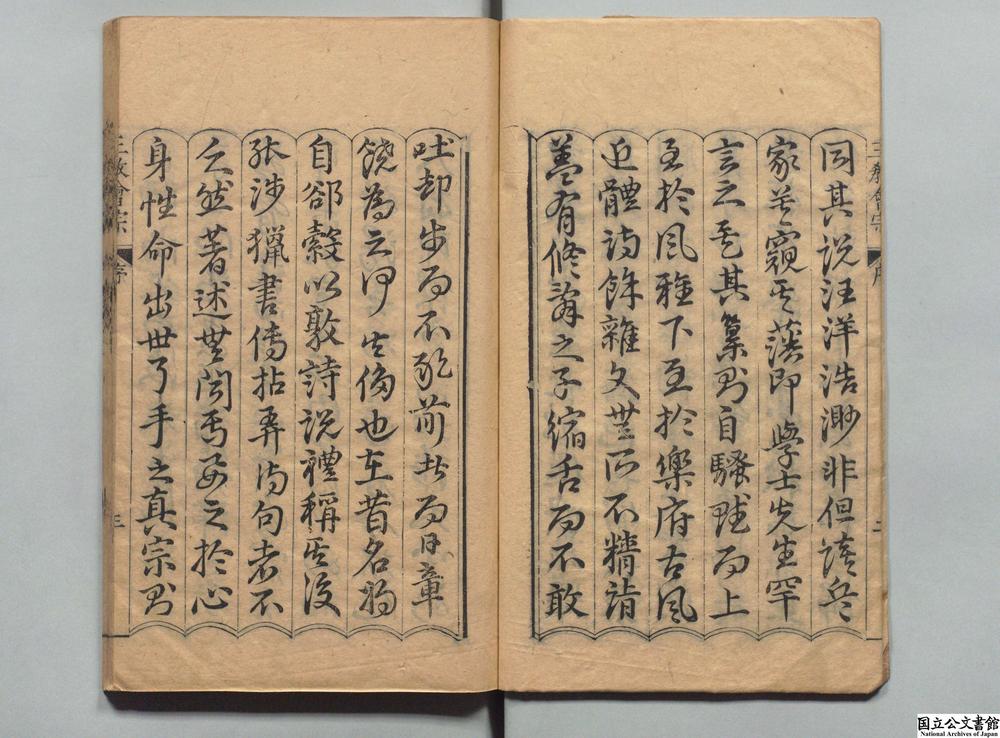 同其説汪洋浩渺非但談兵
家者窺其藩即學士先生罕
言之至其篡則自騷賦而上
至於風雅下至於樂府古風
近體詩餘雜文無所不精詣
蓋有修辭之子縮舌而不敢
吐却步而不能前者而日章
饒為之何其偉也在昔名將
自郤縠以敦詩説禮稱其後
張涉獵書傳拈弄詩句者不
乏然著述無聞焉要之於心
身性命出世了手之真宗則
三教會宗 序 二
三教會宗 序 三
国立公文書館
National Archives of Japan